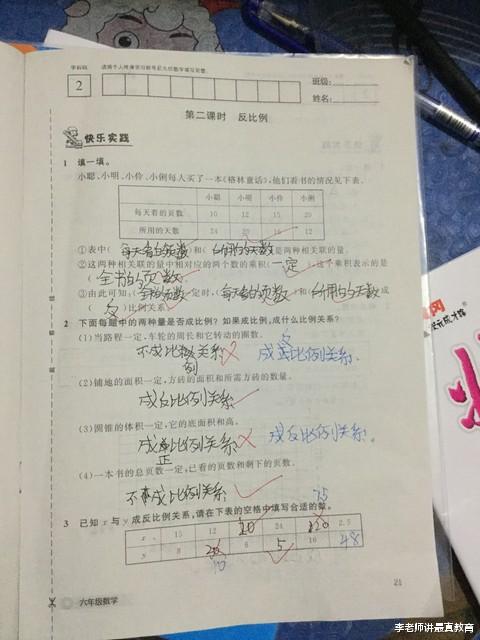 学科码
2
班级:
姓名:
第二课时 反比例
快乐实践
1 填一填。
小聪、小明、小伶、小俐每人买了一本《格林童话》,他们看书的情况见下表。
小聪 小明 小伶 小俐
每天看的页数 10 12 15 20
所用的天数 24 20 16 12
①表中( 每天看的页数 )和( 所用的天数 )是两种相关联的量。
②这两种相关联的量中相对应的两个数的乘积( 一定 ),这个乘积表示的是
( 全书的页数 )。
③由此可知:( 全书的页数 )一定时,( 每天看的页数 )和( 所用的天数 )成
( 反 )比例关系。
2 下面每题中的两种量是否成比例?如果成比例,成什么比例关系?
(1)当路程一定,车轮的周长和它转动的圈数。
不成比例关系 成反比例关系.
(2)铺地的面积一定,方砖的面积和所需方砖的数量。
成反比例关系
(3)圆锥的体积一定,它的底面积和高。
成正比例关系 成反比例关系。
(4)一本书的总页数一定,已看的页数和剩下的页数。
不成比例关系
75
3 已知 x 与 y 成反比例关系,请在下表的空格中填写合适的数。
x 15 12 20 24 2.5
y 8 6 5 16 48
10
21
六年级数学
李老师讲最真教育